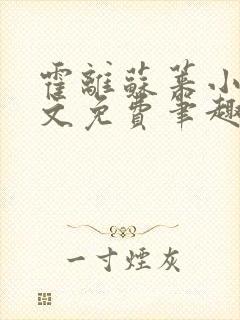 霍離蘇慕小
文免費筆趣
一寸煙灰